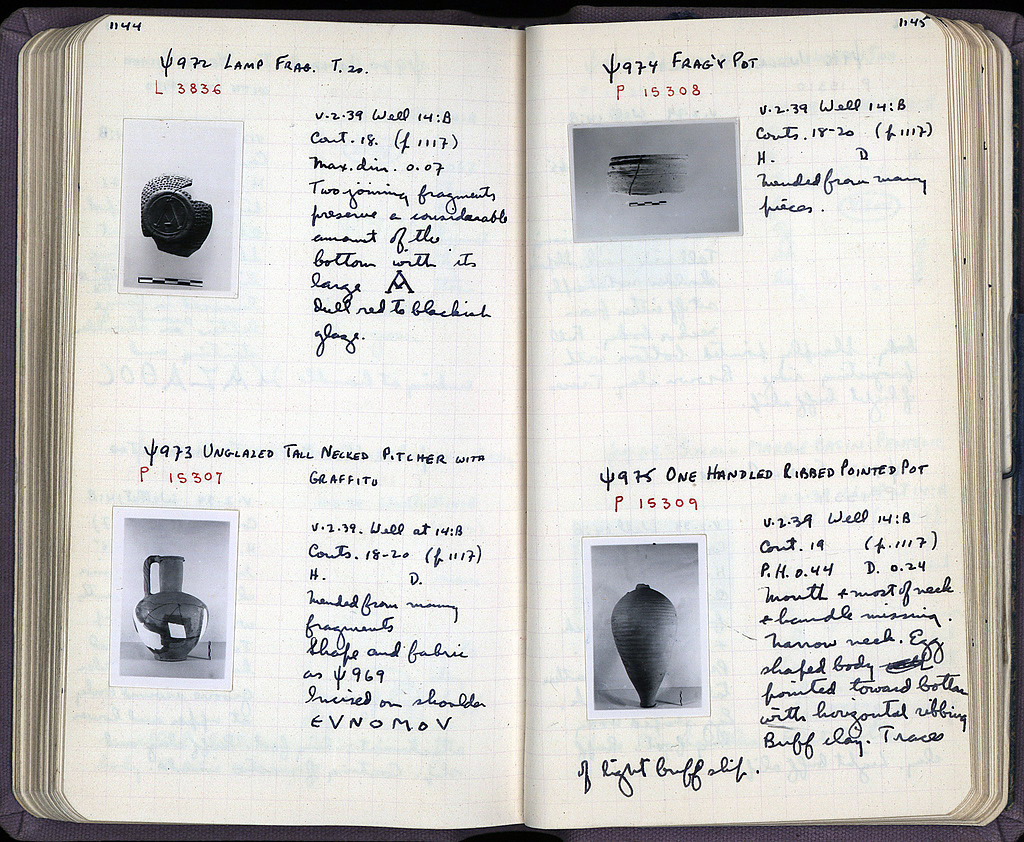 1144
Ψ972 LAMP FRAG. T. 20.
L 3836
V.2.39 Well 14:B
Cont. 18. (p 1117)
Max. dim. 0.07
Two joining fragments
preserve a considerable
amount of the
bottom with its
large
Dull red to blackish
glaze.
Ψ973 UNGLAZED TALL NECKED PITCHER WITH
P 15307
GRAFFITO
V.2.39. Well at 14:B
Conts. 18-20 (p 1117)
H. D.
Mended from many
fragments
Shape and fabric
as Ψ969
Incised on shoulder
EVNOMOV
1145
Ψ974 FRAG'Y POT
P 15308
V.2.39 Well 14:B
Conts. 18-20 (p 1117)
H. D
Mended from many
pieces.
Ψ975 ONE HANDLED RIBBED POINTED POT
P 15309
V.2.39 Well 14:B
Cont. 19 (p. 1117)
P.H. 0.44 D. 0.24
Mouth + most of neck
+ handle missing.
Narrow neck. Egg
shaped body
pointed toward bottom
with horizontal ribbing
Buff clay. Traces
of light buff slip.